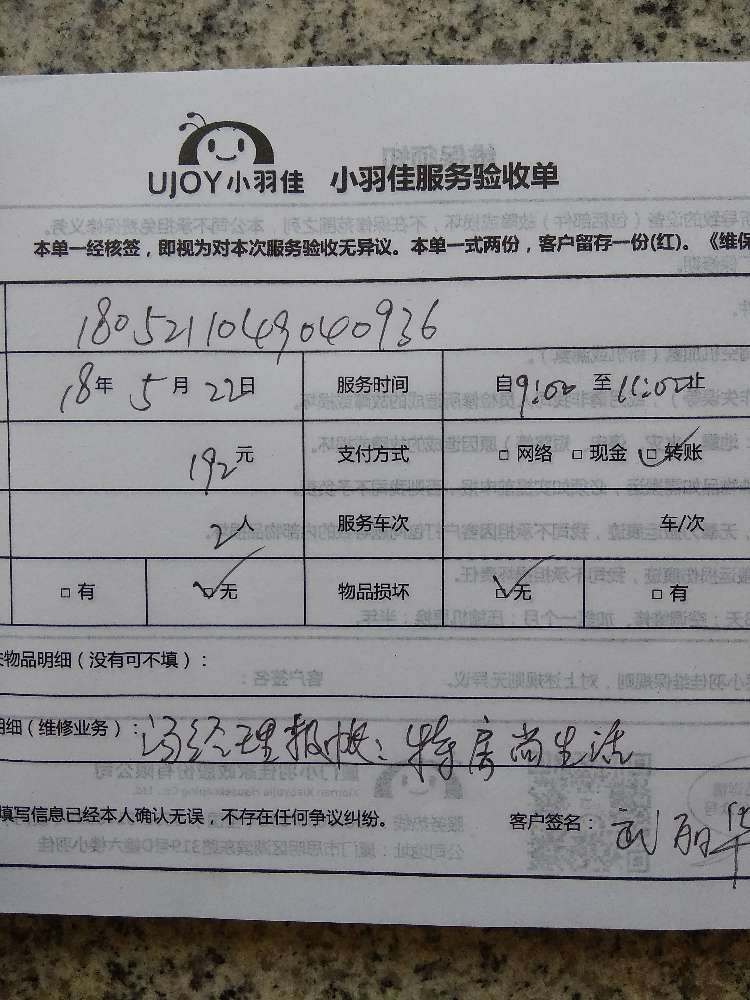 UJOY小羽佳 小羽佳服务验收单
本单一经核签，即视为对本次服务验收无异议。本单一式两份，客户留存一份(红)。《维保
1805211049040936
18年5月22日 服务时间 自9:00至11:00止
192元 支付方式 □ 网络 □ 现金 ☑ 转账
2人 服务车次 车/次
□ 有 ☑ 无 物品损坏 ☑ 无 □ 有
物品明细（没有可不填）：
明细（维修业务）：冯经理报帐：特房尚生活
填写信息已经本人确认无误，不存在任何争议纠纷。 客户签名：武丽华